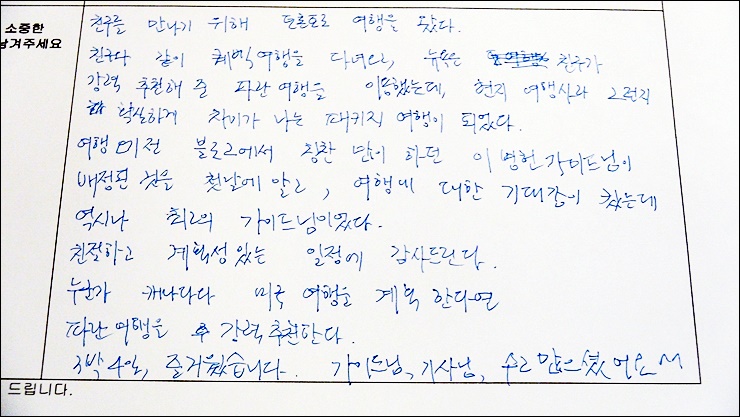 소중한
남겨주세요
친구를 만나기 위해 토론토로 여행을 왔다.
친구와 같이 퀘벡여행을 다녀오고, 뉴욕은 친구가
강력 추천해 준 파란 여행을 이용했는데, 현지 여행사라 그런지
확실하게 차이가 나는 패키지 여행이 되었다.
여행 이전 블로그에서 칭찬 많이 하던 이병헌 가이드님이
배정된 것을 첫날에 알고, 여행에 대한 기대감이 컸는데
역시나 최고의 가이드님이었다.
친절하고 계획성 있는 일정에 감사드린다.
누군가 캐나다다 미국 여행을 계획 한다면
파란여행을 강력 추천한다.
3박4일, 즐거웠습니다. 가이드님, 기사님, 수고 많으셨어요
드립니다.